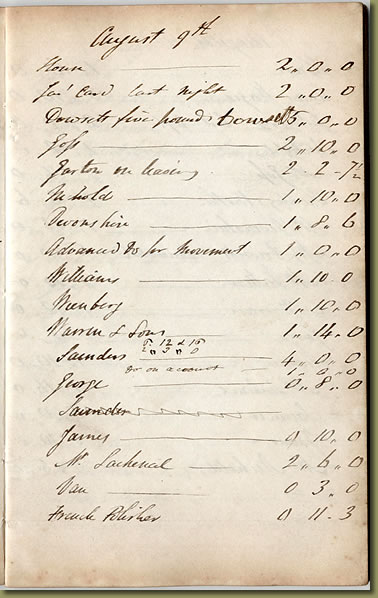 August 9th
House 2 " 0 " 0
last night 2 " 0 " 0
Dowsett five pounds Dowsett 5 " 0 " 0
Goss 2 " 10 " 0
Garton on leaving 2 " 2 - 7½
Nicholds 1 " 10 " 0
Devonshire 1 " 8 " 6
Advanced Do for Movement 1 " 0 " 0
Williams 1 " 10 0
1 " 10 " 0
Warren & Sons 1 " 14 " 0
Saunders 4 " 0 " 0
Do on account 1 " 0 " 0
George 0 " 8 " 0
Saunders
James 0 10 " 0
Mr Lachenal 2 " 6 " 0
Van 0 3 " 0
French Polisher 0 11 " 3